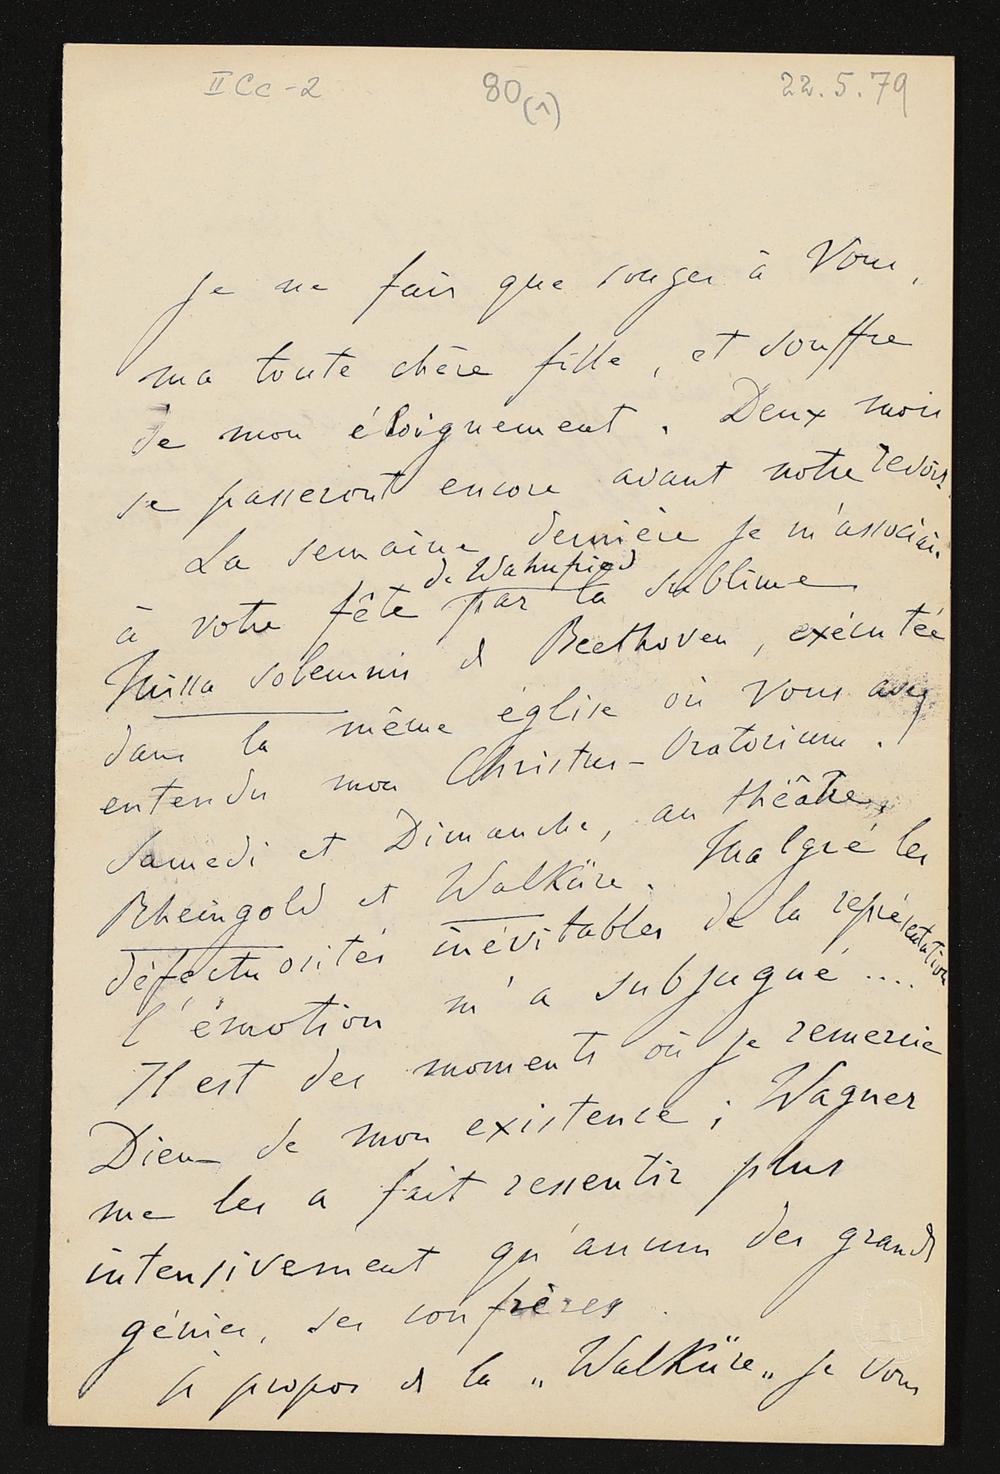 II Cc - 2 80 (1) 22.5.79
Je ne fais que songer à Vous,
ma toute chère fille, et souffre
de mon éloignement. Deux mois
se passeront encore avant notre revoir.
La semaine dernière je m'associais
de Wahnfried
à votre fête par la sublime
Missa solemnis de Beethoven, exécutée
dans la même église où Vous avez
entendu mon Christus-Oratorium.
Samedi et Dimanche, au théâtre,
Rheingold et Walküre. Malgré les
défectuosités inévitables de la représentation
l'émotion m'a subjugué ....
Il est des moments où je remercie
Dieu de mon existence; Wagner
me les a fait ressentir plus
intensivement qu'aucun des grands
génies, ses confrères.
à propos de la „Walküre„ je Vous